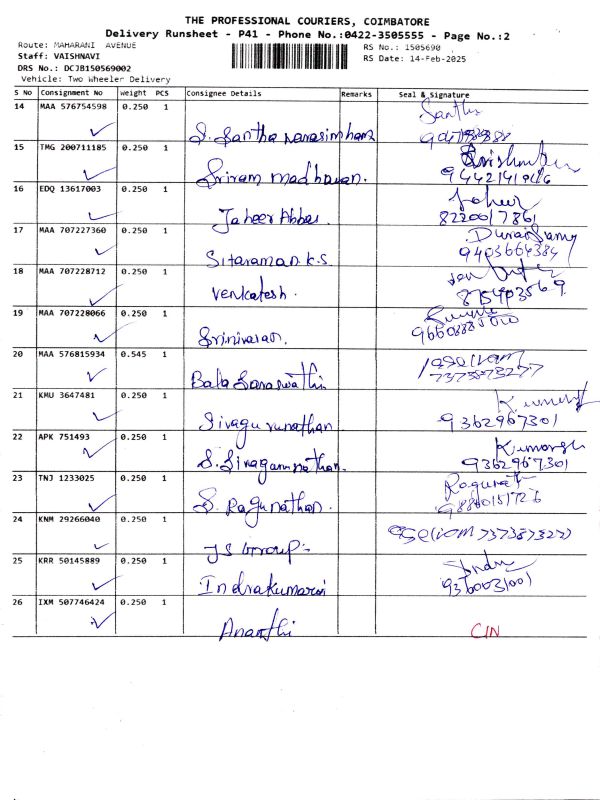 THE PROFESSIONAL COURIERS, COIMBATORE
Delivery Runsheet - P41 - Phone No.:0422-3505555 - Page No.:2
Route: MAHARANI AVENUE RS No.: 1505690
Staff: VAISHNAVI RS Date: 14-Feb-2025
DRS No.: DCJB150569002
Vehicle: Two Wheeler Delivery
S NO Consignment No Weight PCS Consignee Details Remarks Seal & Signature
14 MAA 576754598 0.250 1
S. Santha narasimhan
15 TMG 200711185 0.250 1
Sriram madhavan.
16 EDQ 13617003 0.250 1
Jaheer Abbas 8220017861
17 MAA 707227360 0.250 1 Duraisamy
Sitaraman k.s. 9403664384
18 MAA 707228712 0.250 1
Venkatesh.
19 MAA 707228066 0.250 1
Srinivasan.
20 MAA 576815934 0.545 1
Bala Saraswathi
21 KMU 3647481 0.250 1
Sivagurunathan 9362967301
22 APK 751493 0.250 1 Kumaresh
S. Sivagurunathan. 9362967301
23 TNJ 1233025 0.250 1 Ragunath
S. Ragunathan.
24 KNM 29266040 0.250 1
JS Group:-
25 KRR 50145889 0.250 1 Indru
Indrakumari 9360031001
26 IXM 507746424 0.250 1
Ananthi C/N